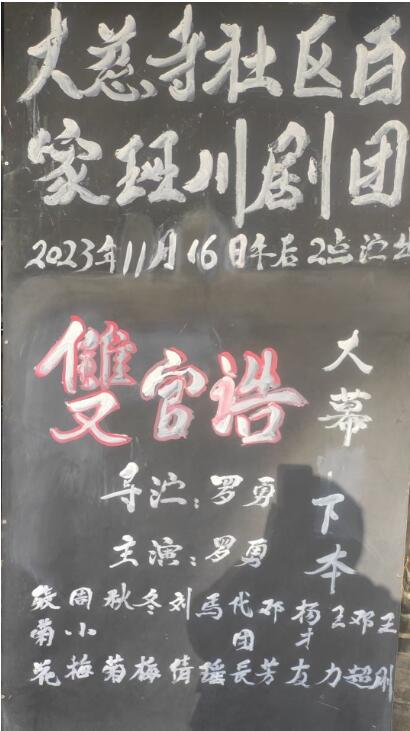 大慈寺社区百
家班川剧团
2023年11月16日午后2点演出
雙官诰
大幕下本
导演：罗勇
主演：罗勇
张菊花 周小梅 秋菊 冬梅 刘倩 馬瑶 代团長 邓芳 杨才友 王力 邓超 王刚